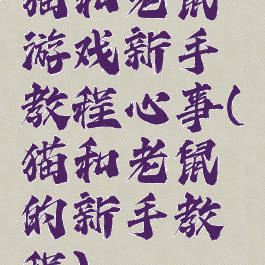 猫和老鼠
游戏新手
教程心事(
猫和老鼠
的新手教
程)